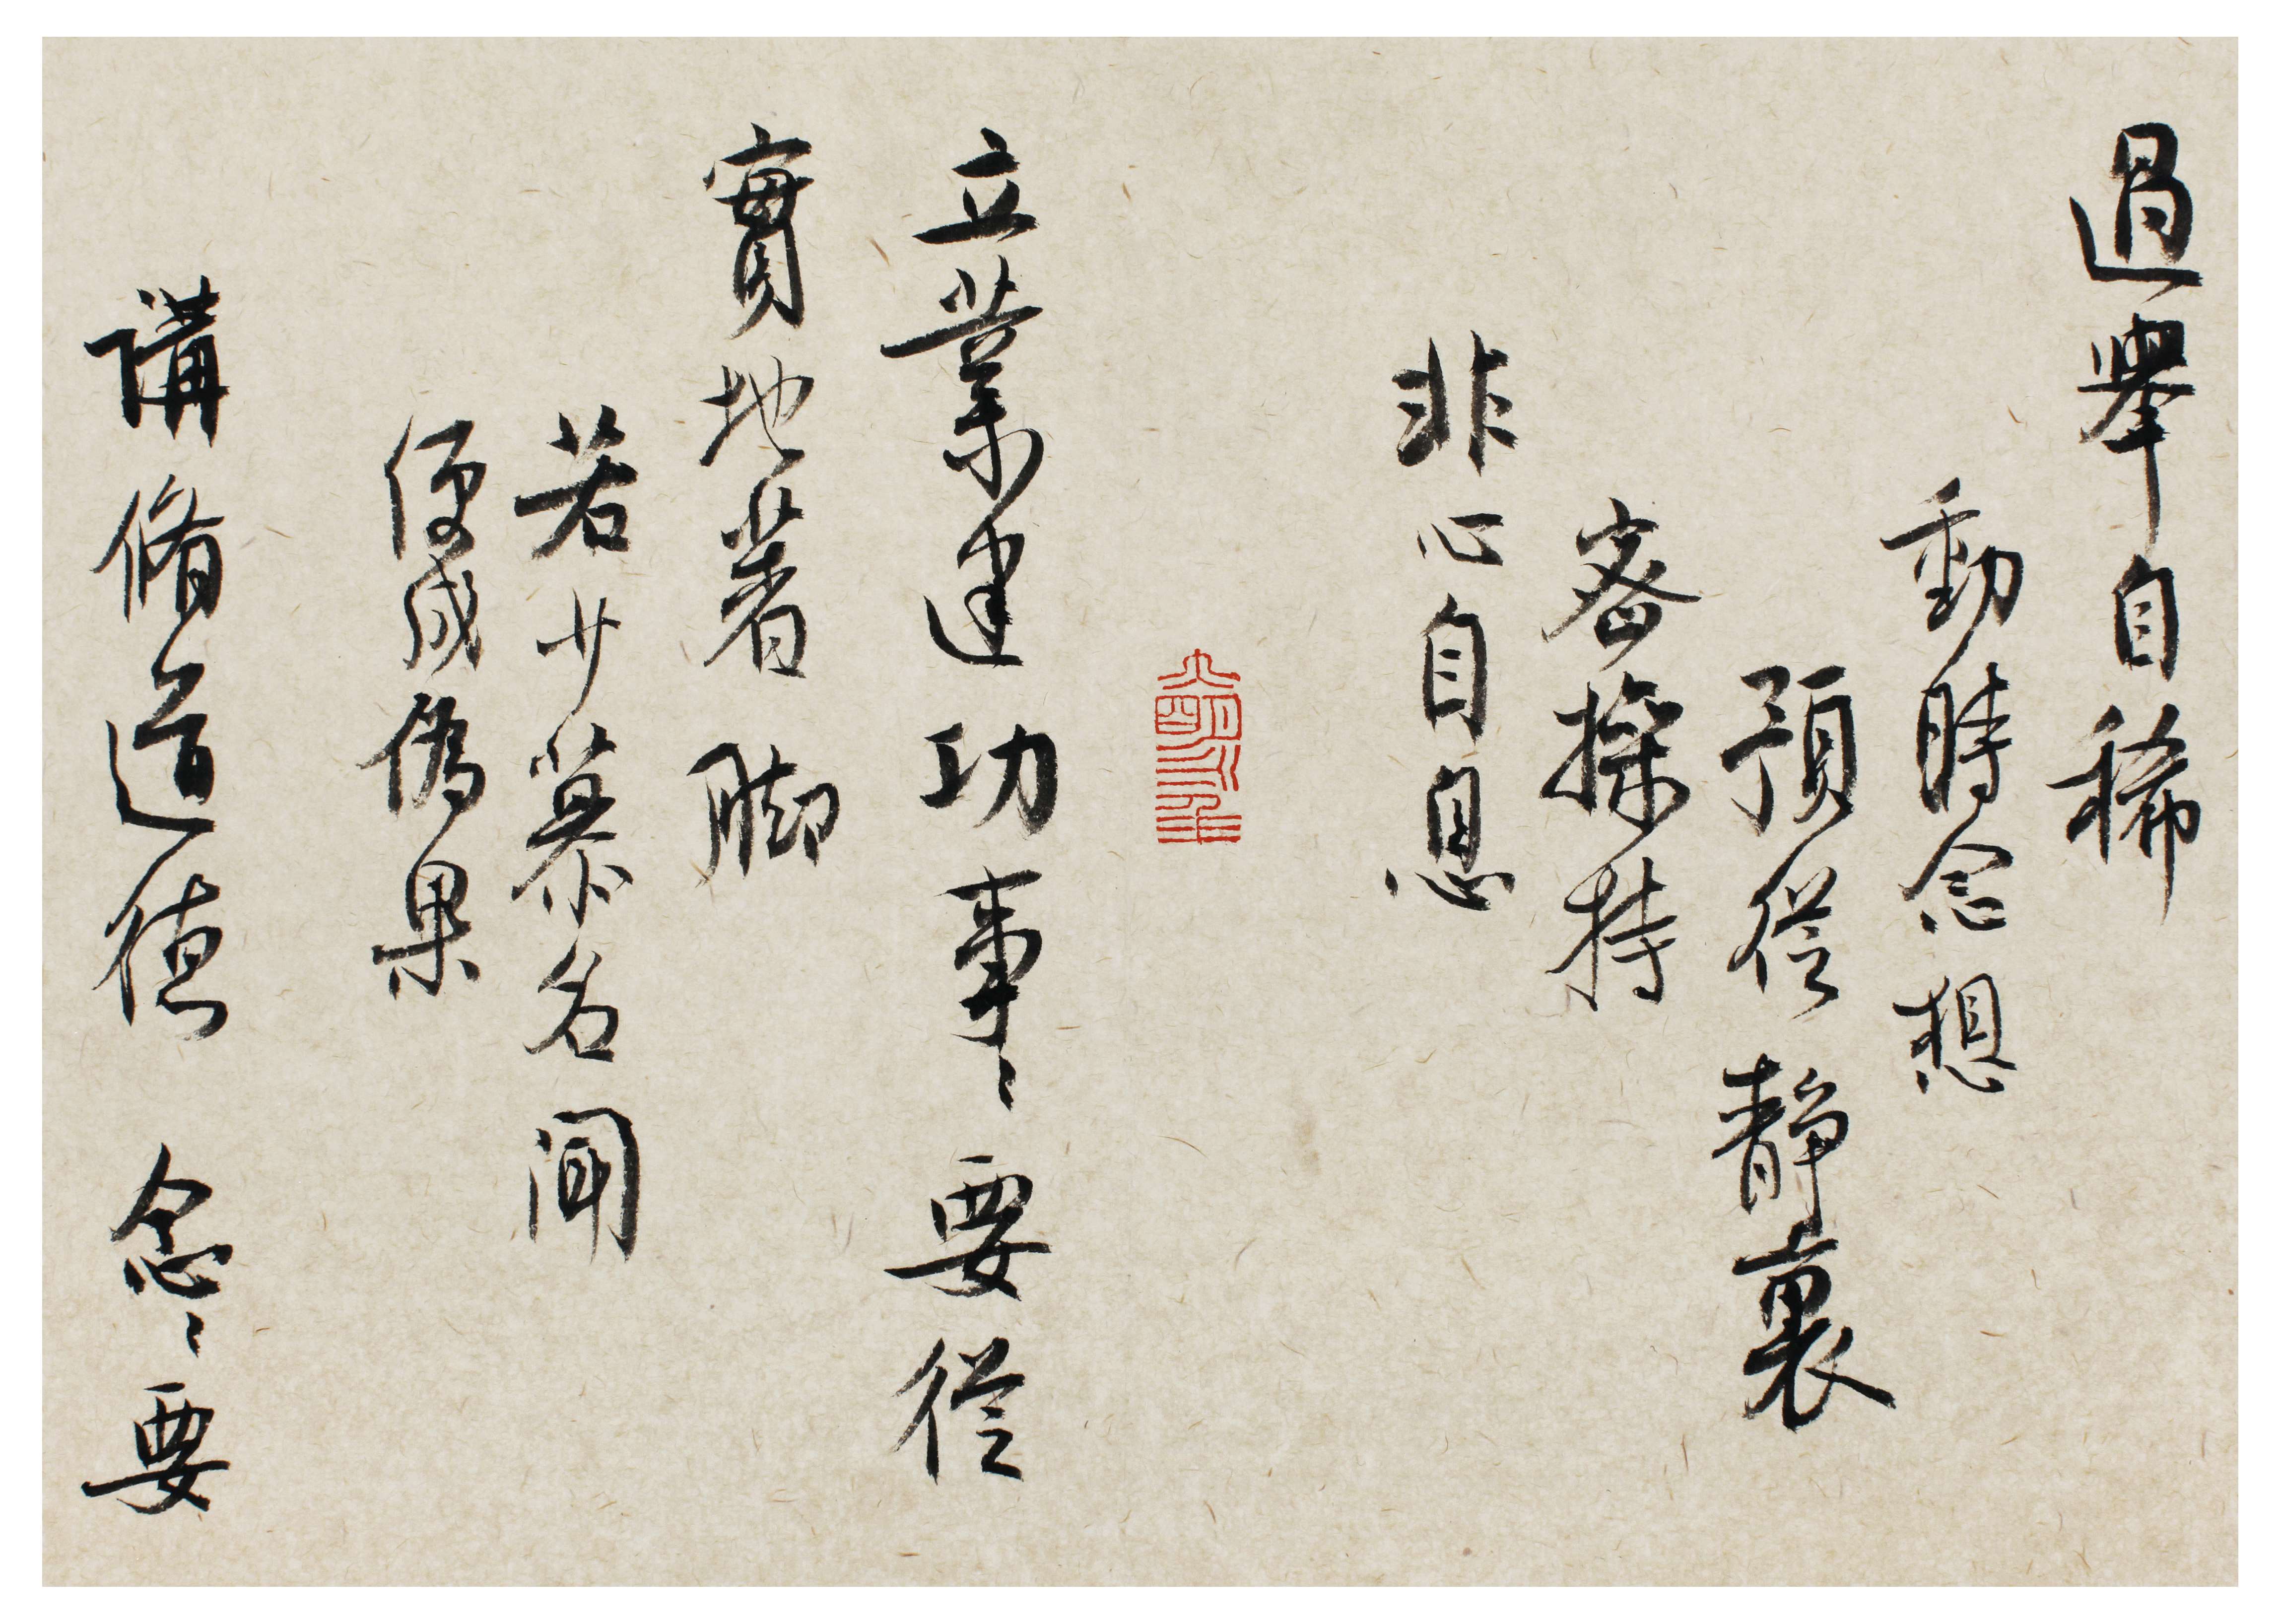 過舉自稀
動時念想
預從靜裏
密操持
非心自息
立業建功事〻要從
實地著脚
若少慕名聞
便成偽果
講脩道德念〻要